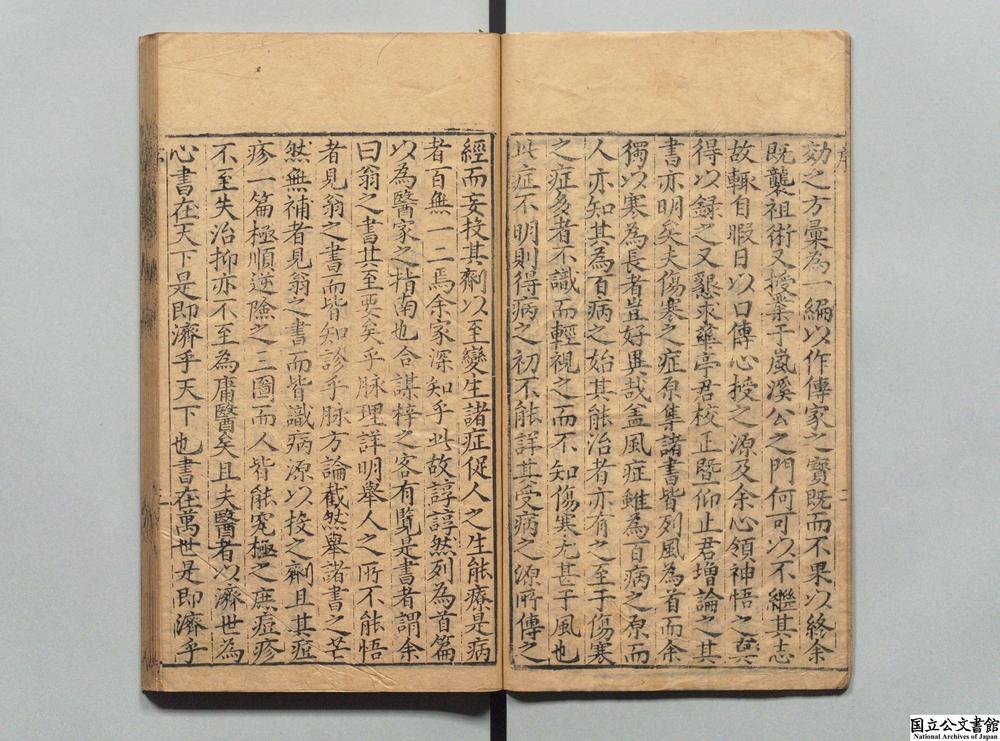 序
效之方彙為一編以作傳家之寶既而不果以終余
既襲祖術又授業于嵐溪公之門何可以不繼其志
故輒自暇日以口傳心授之源及余心領神悟之奧
得以録之又懇求亭君校正暨仰止君增論之其
書亦明矣夫傷寒之症原集諸書皆列風為首而余
獨以寒為長者豈好異哉盖風症雖為百病之原而
人亦知其為百病之始其能治者亦有之至于傷寒
之症多者不識而輕視之而不知傷寒尤甚于風也
此症不明則得病之初不能詳其受病之源所傳之
二
經而妄投其劑以至變生諸症促人之生能療是病
者百無一二焉余家深知乎此故諄諄然列為首篇
以為醫家之指南也合謀梓之客有覽是書者謂余
曰翁之書其至要矣乎脉理詳明舉人之所不能悟
者見翁之書而皆知診乎脉方論截然舉諸書之芒
然無補者見翁之書而皆識病源以投之劑且其痘
疹一篇極順逆險之三圖而人皆能究極之庶痘疹
不至失治抑亦不至為庸醫矣且夫醫者以濟世為
心書在天下是即濟乎天下也書在萬世是即濟乎
国立公文書館
National Archives of Japan